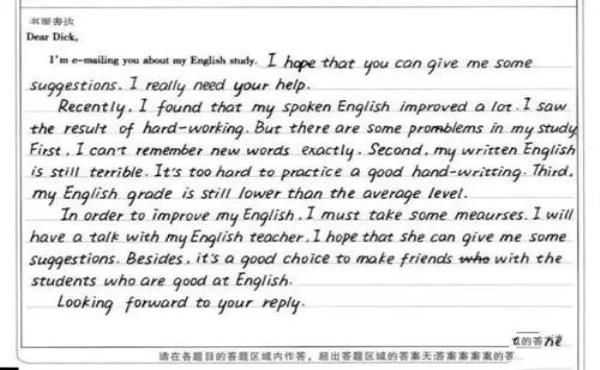 书面表达
Dear Dick,
I'm e-mailing you about my English study. I hope that you can give me some
suggestions. I really need your help.
Recently, I found that my spoken English improved a lot. I saw
the result of hard-working. But there are some promblems in my study
First, I can't remember new words exactly. Second, my written English
is still terrible. It's too hard to practice a good hand-writting. Third,
my English grade is still lower than the average level.
In order to improve my English, I must take some meaurses. I will
have a talk with my English teacher. I hope that she can give me some
suggestions. Besides, it's a good choice to make friends who with the
students who are good at English.
Looking forward to your reply.
的答
请在各题目的答题区域内作答，超出答题区域的答案无答案案案案的答